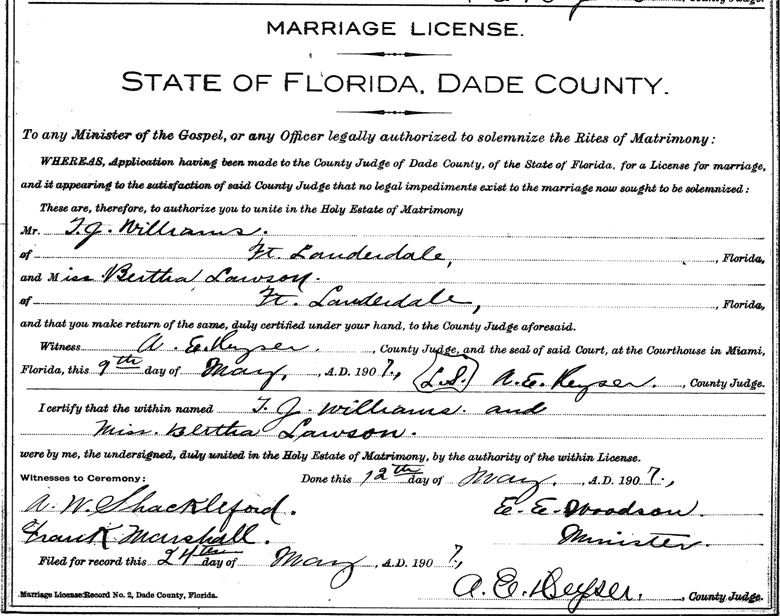 County Judge.
MARRIAGE LICENSE.
STATE OF FLORIDA, DADE COUNTY.
To any Minister of the Gospel, or any Officer legally authorized to solemnize the Rites of Matrimony:
WHEREAS, Application having been made to the County Judge of Dade County, of the State of Florida, for a License for marriage,
and it appearing to the satisfaction of said County Judge that no legal impediments exist to the marriage now sought to be solemnized:
These are, therefore, to authorize you to unite in the Holy Estate of Matrimony
Mr. T. J. Williams.
of Ft. Lauderdale, , Florida,
and Miss Bertha Lawson.
of Ft. Lauderdale, , Florida,
and that you make return of the same, duly certified under your hand, to the County Judge aforesaid.
Witness A. E. Keyser. , County Judge, and the seal of said Court, at the Courthouse in Miami,
Florida, this 9th day of May, , A.D. 1907., (L.S.) A. E. Keyser. , County Judge.
I certify that the within named T. J. Williams. and
Miss. Bertha Lawson.
were by me, the undersigned, duly united in the Holy Estate of Matrimony, by the authority of the within License.
Witnesses to Ceremony: Done this 12th day of May. , A.D. 1907.,
A. W. Shackleford. E. E. Woodson.
Frank Marshall. Minister.
Filed for record this 24th day of May , A.D. 1907.,
A. E. Keyser. , County Judge.
Marriage License Record No. 2, Dade County, Florida.